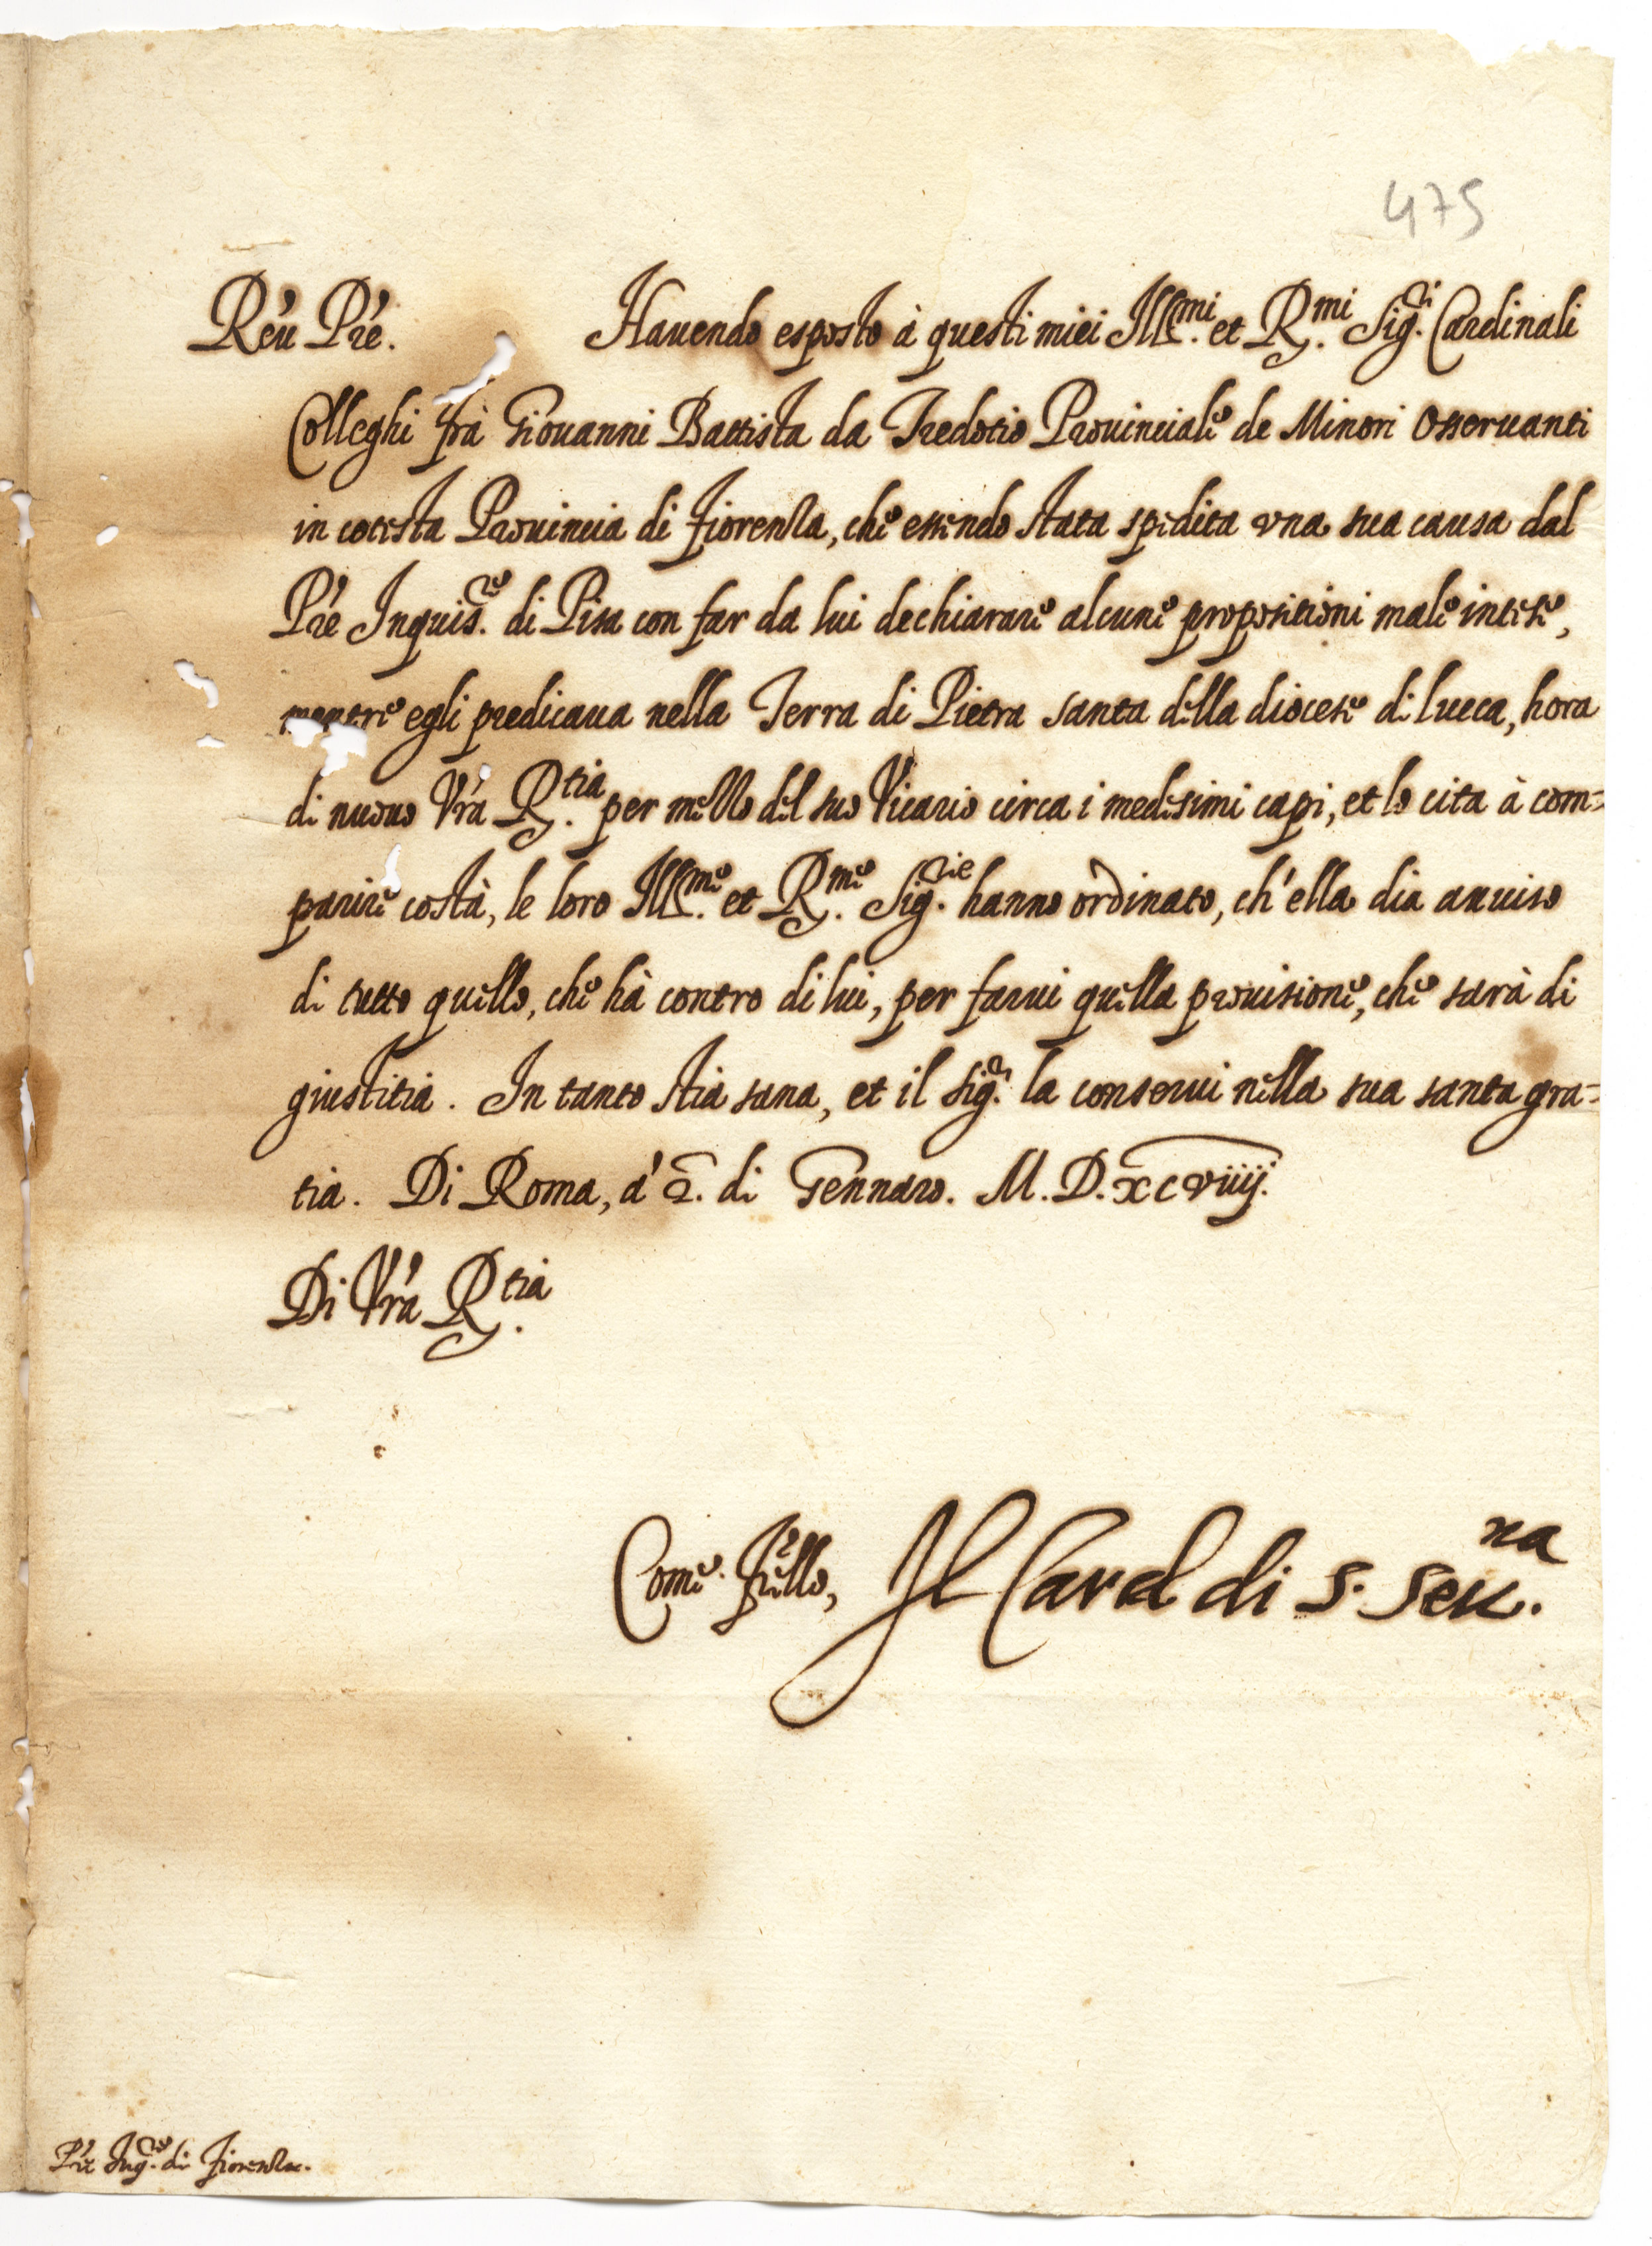 475
Reu Pre. Hauendo esposto à questi miei Ill.mi et R.mi Sig.ri Cardinali
Colleghi frà Giouanni Battista da Tredotio Prouinciale de Minori Osseruanti
in cotesta Prouincia di Fiorenza, che essendo stata spedita vna sua causa dal
Pre Inquis.re di Pisa con far da lui dechiarare alcune propositioni male intese,
mentre egli predicaua nella Terra di Pietra santa della diocese di lucca, hora
di nuouo Vra R.tia per mezzo del suo Vicario circa i medesimi capi, et lo cita à com=
parire costà, le loro Ill.me et R.me Sig.rie hanno ordinato, ch'ella dia auuiso
di tutto quello, che hà contro di lui, per farui quella prouisione, che sarà di
giustitia. In tanto stia sana, et il Sig.r la conserui nella sua santa gra=
tia. Di Roma, à 2. di Gennaro. M.D.xcviiij.
Di Vra R.tia
Come frello, Il Card di S. Seu.na
Pre Inq.re di Fiorenza.